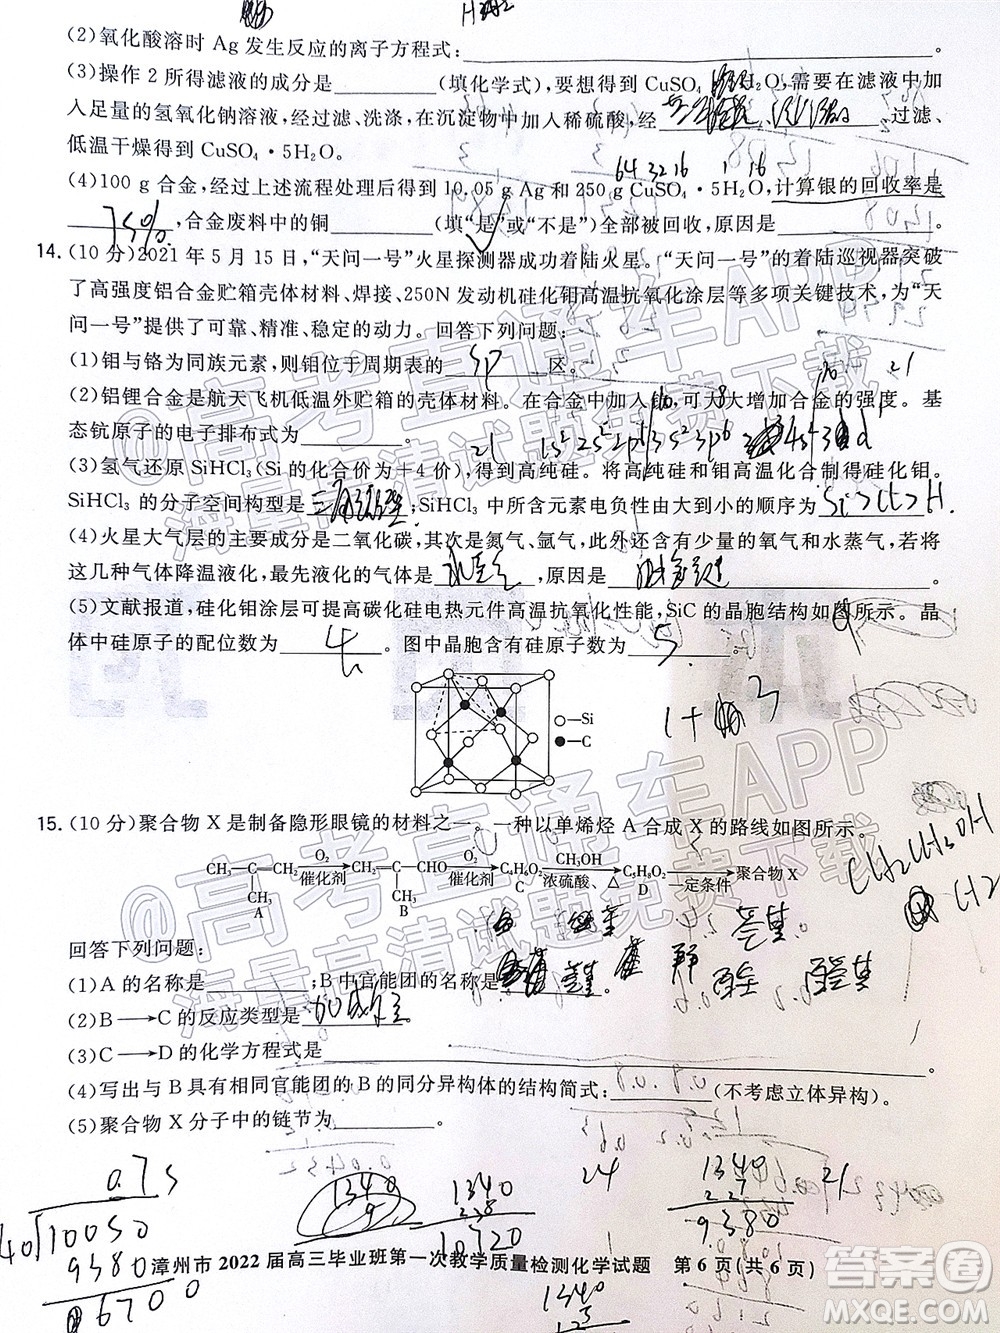 (2)氧化酸溶时 Ag 发生反应的离子方程式:。
(3)操作 2 所得滤液的成分是(填化学式),要想得到 CuSO₄·5H₂O,需要在滤液中加
入足量的氢氧化钠溶液,经过滤、洗涤,在沉淀物中加入稀硫酸,经、过滤、
低温干燥得到 CuSO₄·5H₂O。
64 32 16 1 16
(4)100 g 合金,经过上述流程处理后得到 10.05 g Ag 和 250 g CuSO₄·5H₂O,计算银的回收率是
75%,合金废料中的铜(填“是”或“不是”)全部被回收,原因是。
14.(10 分)2021 年 5 月 15 日,“天问一号”火星探测器成功着陆火星。“天问一号”的着陆巡视器突破
了高强度铝合金贮箱壳体材料、焊接、250N 发动机硅化钼高温抗氧化涂层等多项关键技术,为“天
问一号”提供了可靠、精准、稳定的动力。回答下列问题:
(1)钼与铬为同族元素,则钼位于周期表的 sp 区。
21
(2)铝锂合金是航天飞机低温外贮箱的壳体材料。在合金中加入,可大大增加合金的强度。基
态钪原子的电子排布式为。
21
(3)氢气还原 SiHCl₃(Si 的化合价为+4 价),得到高纯硅。将高纯硅和钼高温化合制得硅化钼。
SiHCl₃ 的分子空间构型是 三角锥型;SiHCl₃ 中所含元素电负性由大到小的顺序为 Si>Cl>H.
(4)火星大气层的主要成分是二氧化碳,其次是氮气、氩气,此外还含有少量的氧气和水蒸气,若将
这几种气体降温液化,最先液化的气体是 水蒸气,原因是。
(5)文献报道,硅化钼涂层可提高碳化硅电热元件高温抗氧化性能,SiC 的晶胞结构如图所示。晶
体中硅原子的配位数为 4。图中晶胞含有硅原子数为 5。
Si
C
1+ 3
15.(10 分)聚合物 X 是制备隐形眼镜的材料之一。一种以单烯烃 A 合成 X 的路线如图所示。
CH₃—C=CH₂ O₂ 催化剂 CH₂=C—CHO O₂ 催化剂 C₄H₆O₂ CH₃OH 浓硫酸、△ C₅H₈O₂ 一定条件 聚合物 X
CH₃ CH₃
A B C D
CH₂CH₃OH
回答下列问题:
(1)A 的名称是;B 中官能团的名称是。
(2)B→C 的反应类型是 加成反应
(3)C→D 的化学方程式是。
(4)写出与 B 具有相同官能团的 B 的同分异构体的结构简式:(不考虑立体异构)。
(5)聚合物 X 分子中的链节为。
0.75
10050
9380
6700
1340
9
1340
10720
24
1340
9380
21
漳州市 2022 届高三毕业班第一次教学质量检测化学试题 第 6 页(共 6 页)
1340
@高考直通车APP
海量高清试题免费下载
@高考直通车APP
海量高清试题免费下载
答案圈
MXQE.COM